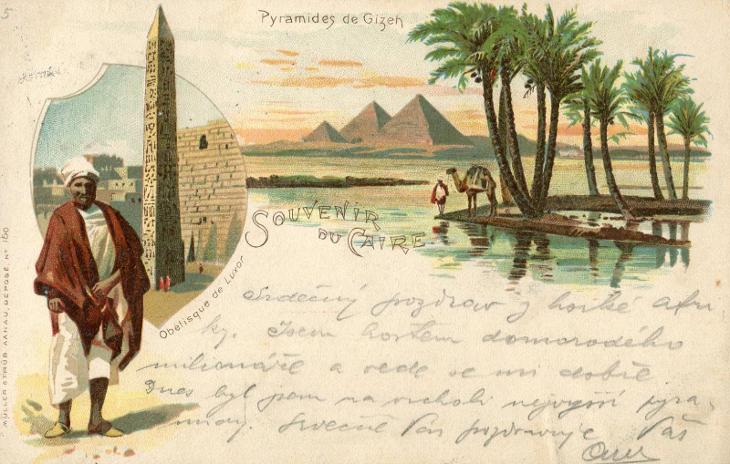 5
Pyramides de Gizeh
SOUVENIR
DU CAIRE
Obélisque de Luxor
MÜLLER & TRÜB. AARAU, DÉPOSÉ. Nº 160
Srdečný pozdrav z horké Afri
ky. Jsem hostem domorodého
milionáře a vede se mi dobře
Dnes byl jsem na vrcholi nejvyšší pyra
midy. Srdečně Vás pozdravuje Váš